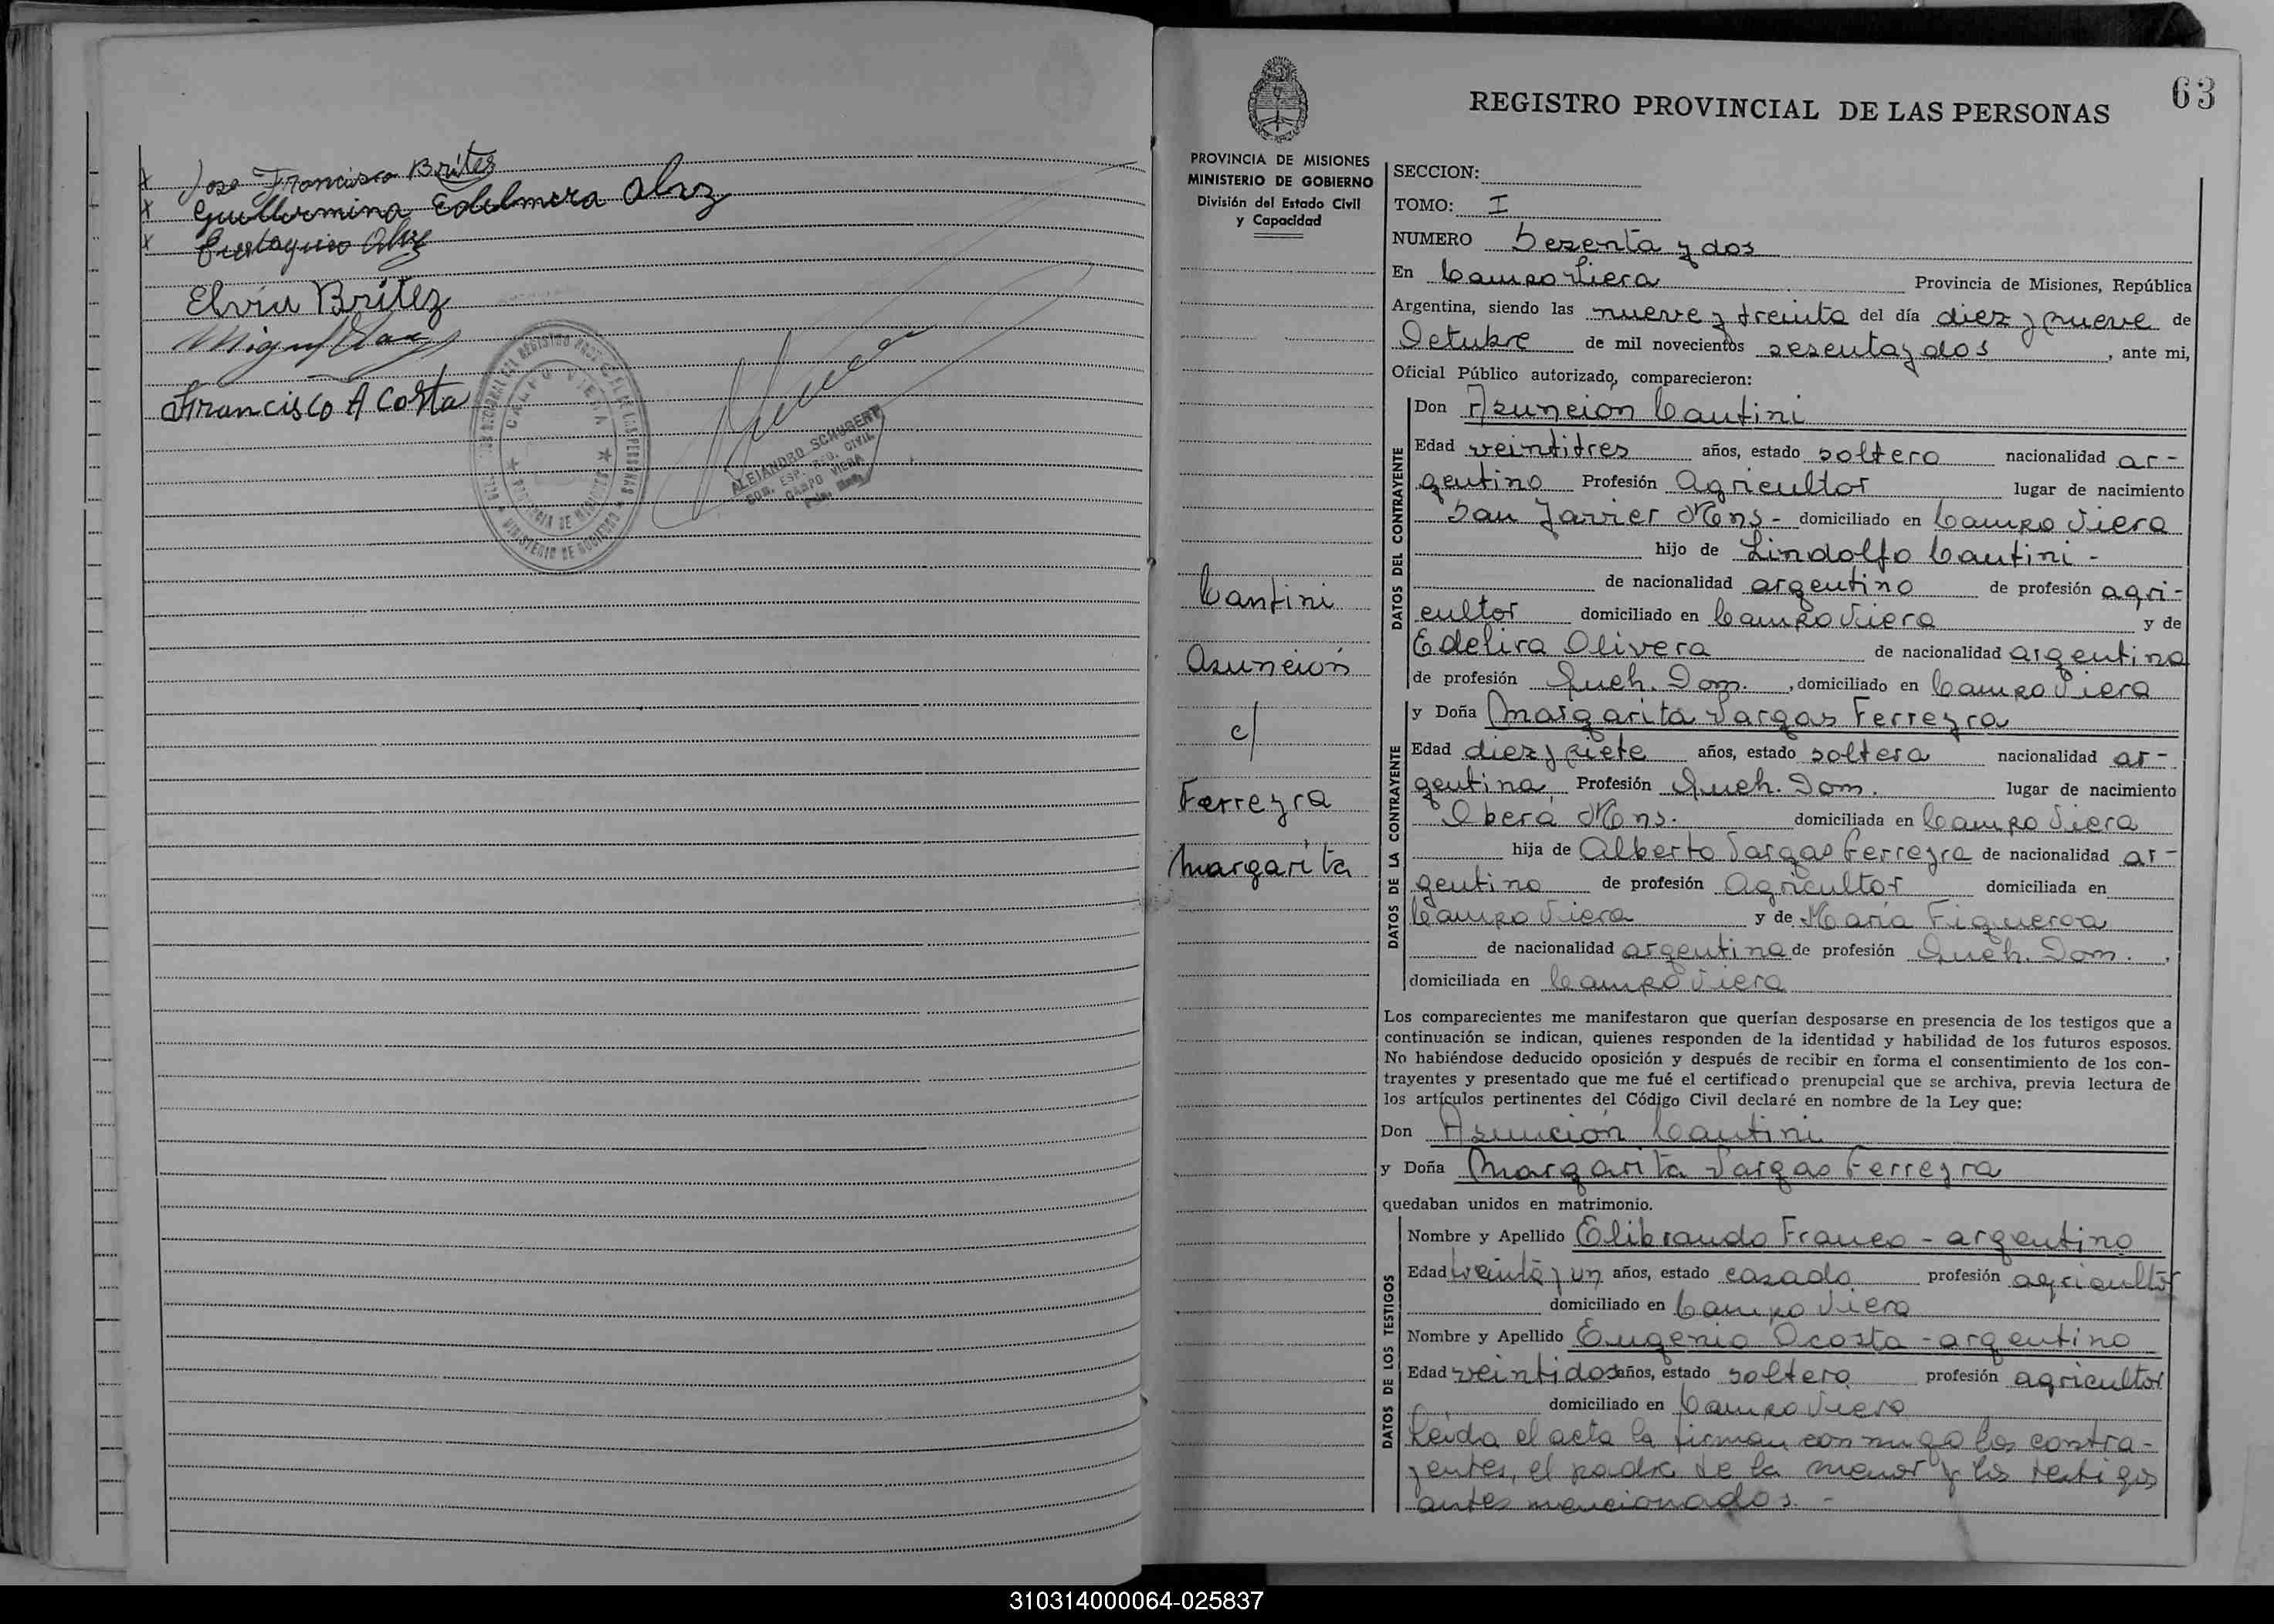 Jose Francisco Brites
Guillermina Edelmira Alvz
Eustaquio Alvz
Elvia Britez
Francisco Acosta
CAMPO VIERA
MINISTERIO DE GOBIERNO
ALEJANDRO SCHUBERT
CAMPO VIERA
63
REGISTRO PROVINCIAL DE LAS PERSONAS
PROVINCIA DE MISIONES
MINISTERIO DE GOBIERNO
División del Estado Civil
y Capacidad
Cantini
Asunción
c/
Ferreyra
Margarita
SECCION:
TOMO: I
NUMERO Sesenta y dos
En Campo Viera Provincia de Misiones, República
Argentina, siendo las nueve y treinta del día diez y nueve de
Octubre de mil novecientos sesenta y dos, ante mi,
Oficial Público autorizado, comparecieron:
DATOS DEL CONTRAYENTE
Don Asuncion Cantini
Edad veintitres años, estado soltero nacionalidad ar-
gentino Profesión Agricultor lugar de nacimiento
San Javier Mns- domiciliado en Campo Viera
hijo de Lindolfo Cantini -
de nacionalidad argentino de profesión agri-
cultor domiciliado en Campo Viera y de
Edelira Olivera de nacionalidad argentina
de profesión Queh. Dom. , domiciliado en Campo Viera
DATOS DE LA CONTRAYENTE
y Doña Margarita Vargas Ferreyra
Edad diez y siete años, estado soltera nacionalidad ar-
gentina Profesión Queh. Dom. lugar de nacimiento
Oberá Mns. domiciliada en Campo Viera
hija de Alberto Vargas Ferreyra de nacionalidad ar-
gentino de profesión Agricultor domiciliada en
Campo Viera y de María Figueroa
de nacionalidad argentina de profesión Queh. Dom. ,
domiciliada en Campo Viera
Los comparecientes me manifestaron que querían desposarse en presencia de los testigos que a
continuación se indican, quienes responden de la identidad y habilidad de los futuros esposos.
No habiéndose deducido oposición y después de recibir en forma el consentimiento de los con-
trayentes y presentado que me fué el certificado prenupcial que se archiva, previa lectura de
los artículos pertinentes del Código Civil declaré en nombre de la Ley que:
Don Asunción Cantini
y Doña Margarita Vargas Ferreyra
quedaban unidos en matrimonio.
DATOS DE LOS TESTIGOS
Nombre y Apellido Elibrando Franco - argentino
Edad treinta y un años, estado casado profesión agricultor
domiciliado en Campo Viera
Nombre y Apellido Eugenio Acosta - argentino
Edad veintidos años, estado soltero profesión agricultor
domiciliado en Campo Viera
Leida el acta la firman conmigo los contra-
yentes, el padre de la menor y los testigos
antes mencionados. -
310314000064-025837